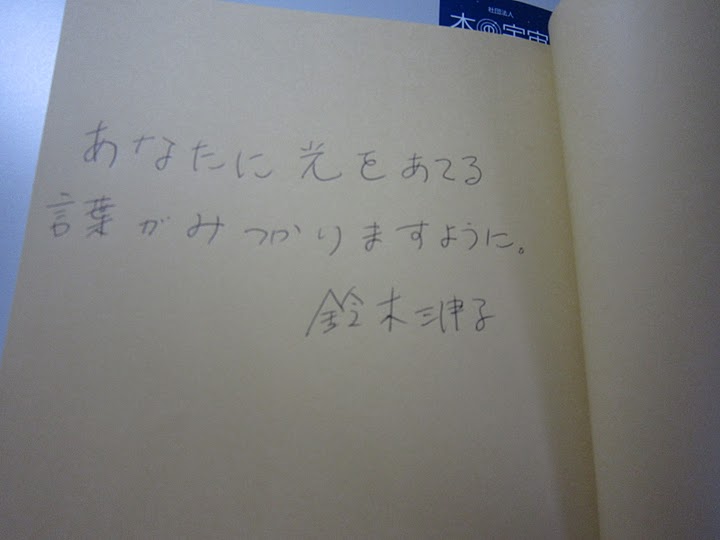 社団法人
の宇宙
あなたに光をあてる
言葉がみつかりますように。
鈴木